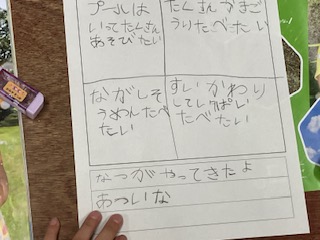 プールは
いってたくさん
あそびたい
たくさんかきご
うりたべたい
ながしそ
うめんたべ
たい
すいかわり
していっぱい
たべたい
なつがやってきたよ
あついな